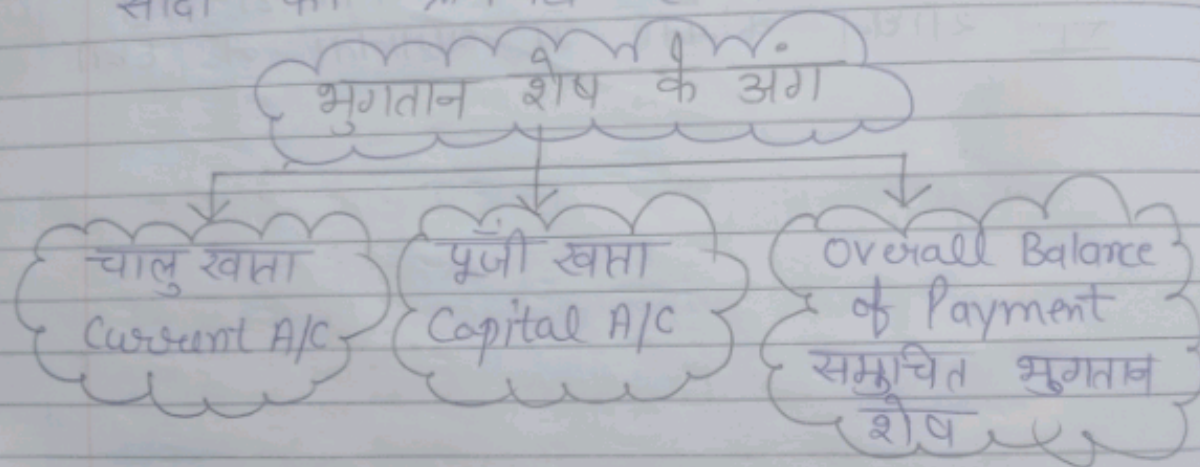 भुगतान शेष के अंग
चालु खाता
Current A/C
पूंजी खाता
Capital A/C
Overall Balance
of Payment
समुचित भुगतान
शेष